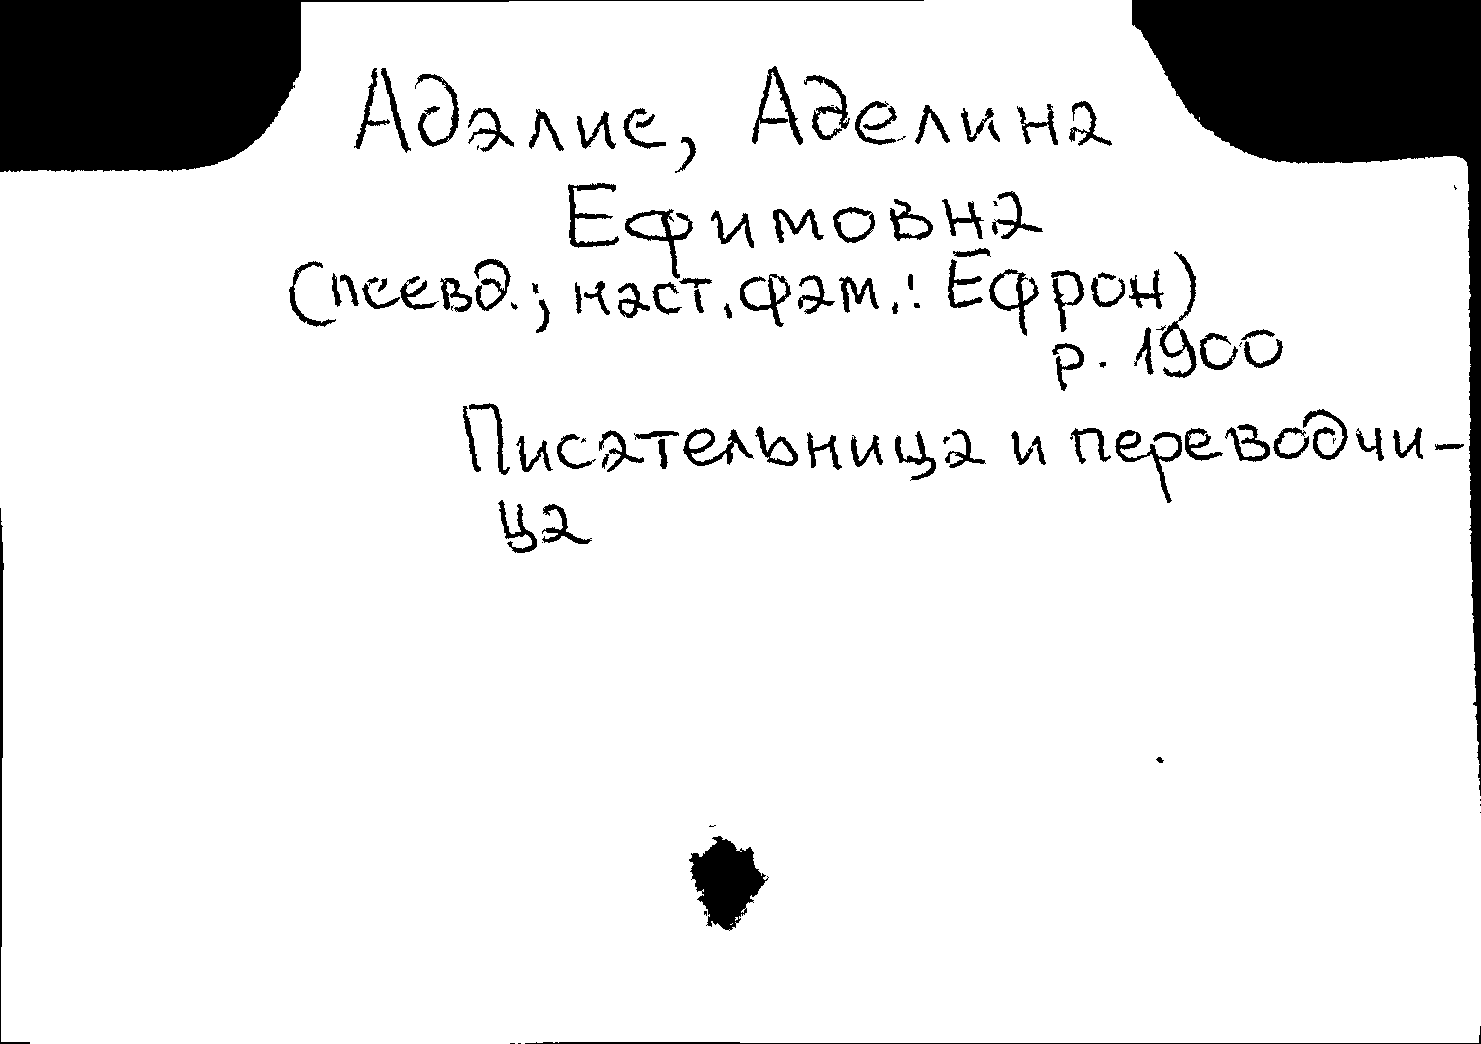 Адалис, Аделина
Ефимовна
(псевд.; наст. фам.: Ефрон)
р. 1900
Писательница и переводчи-
ца